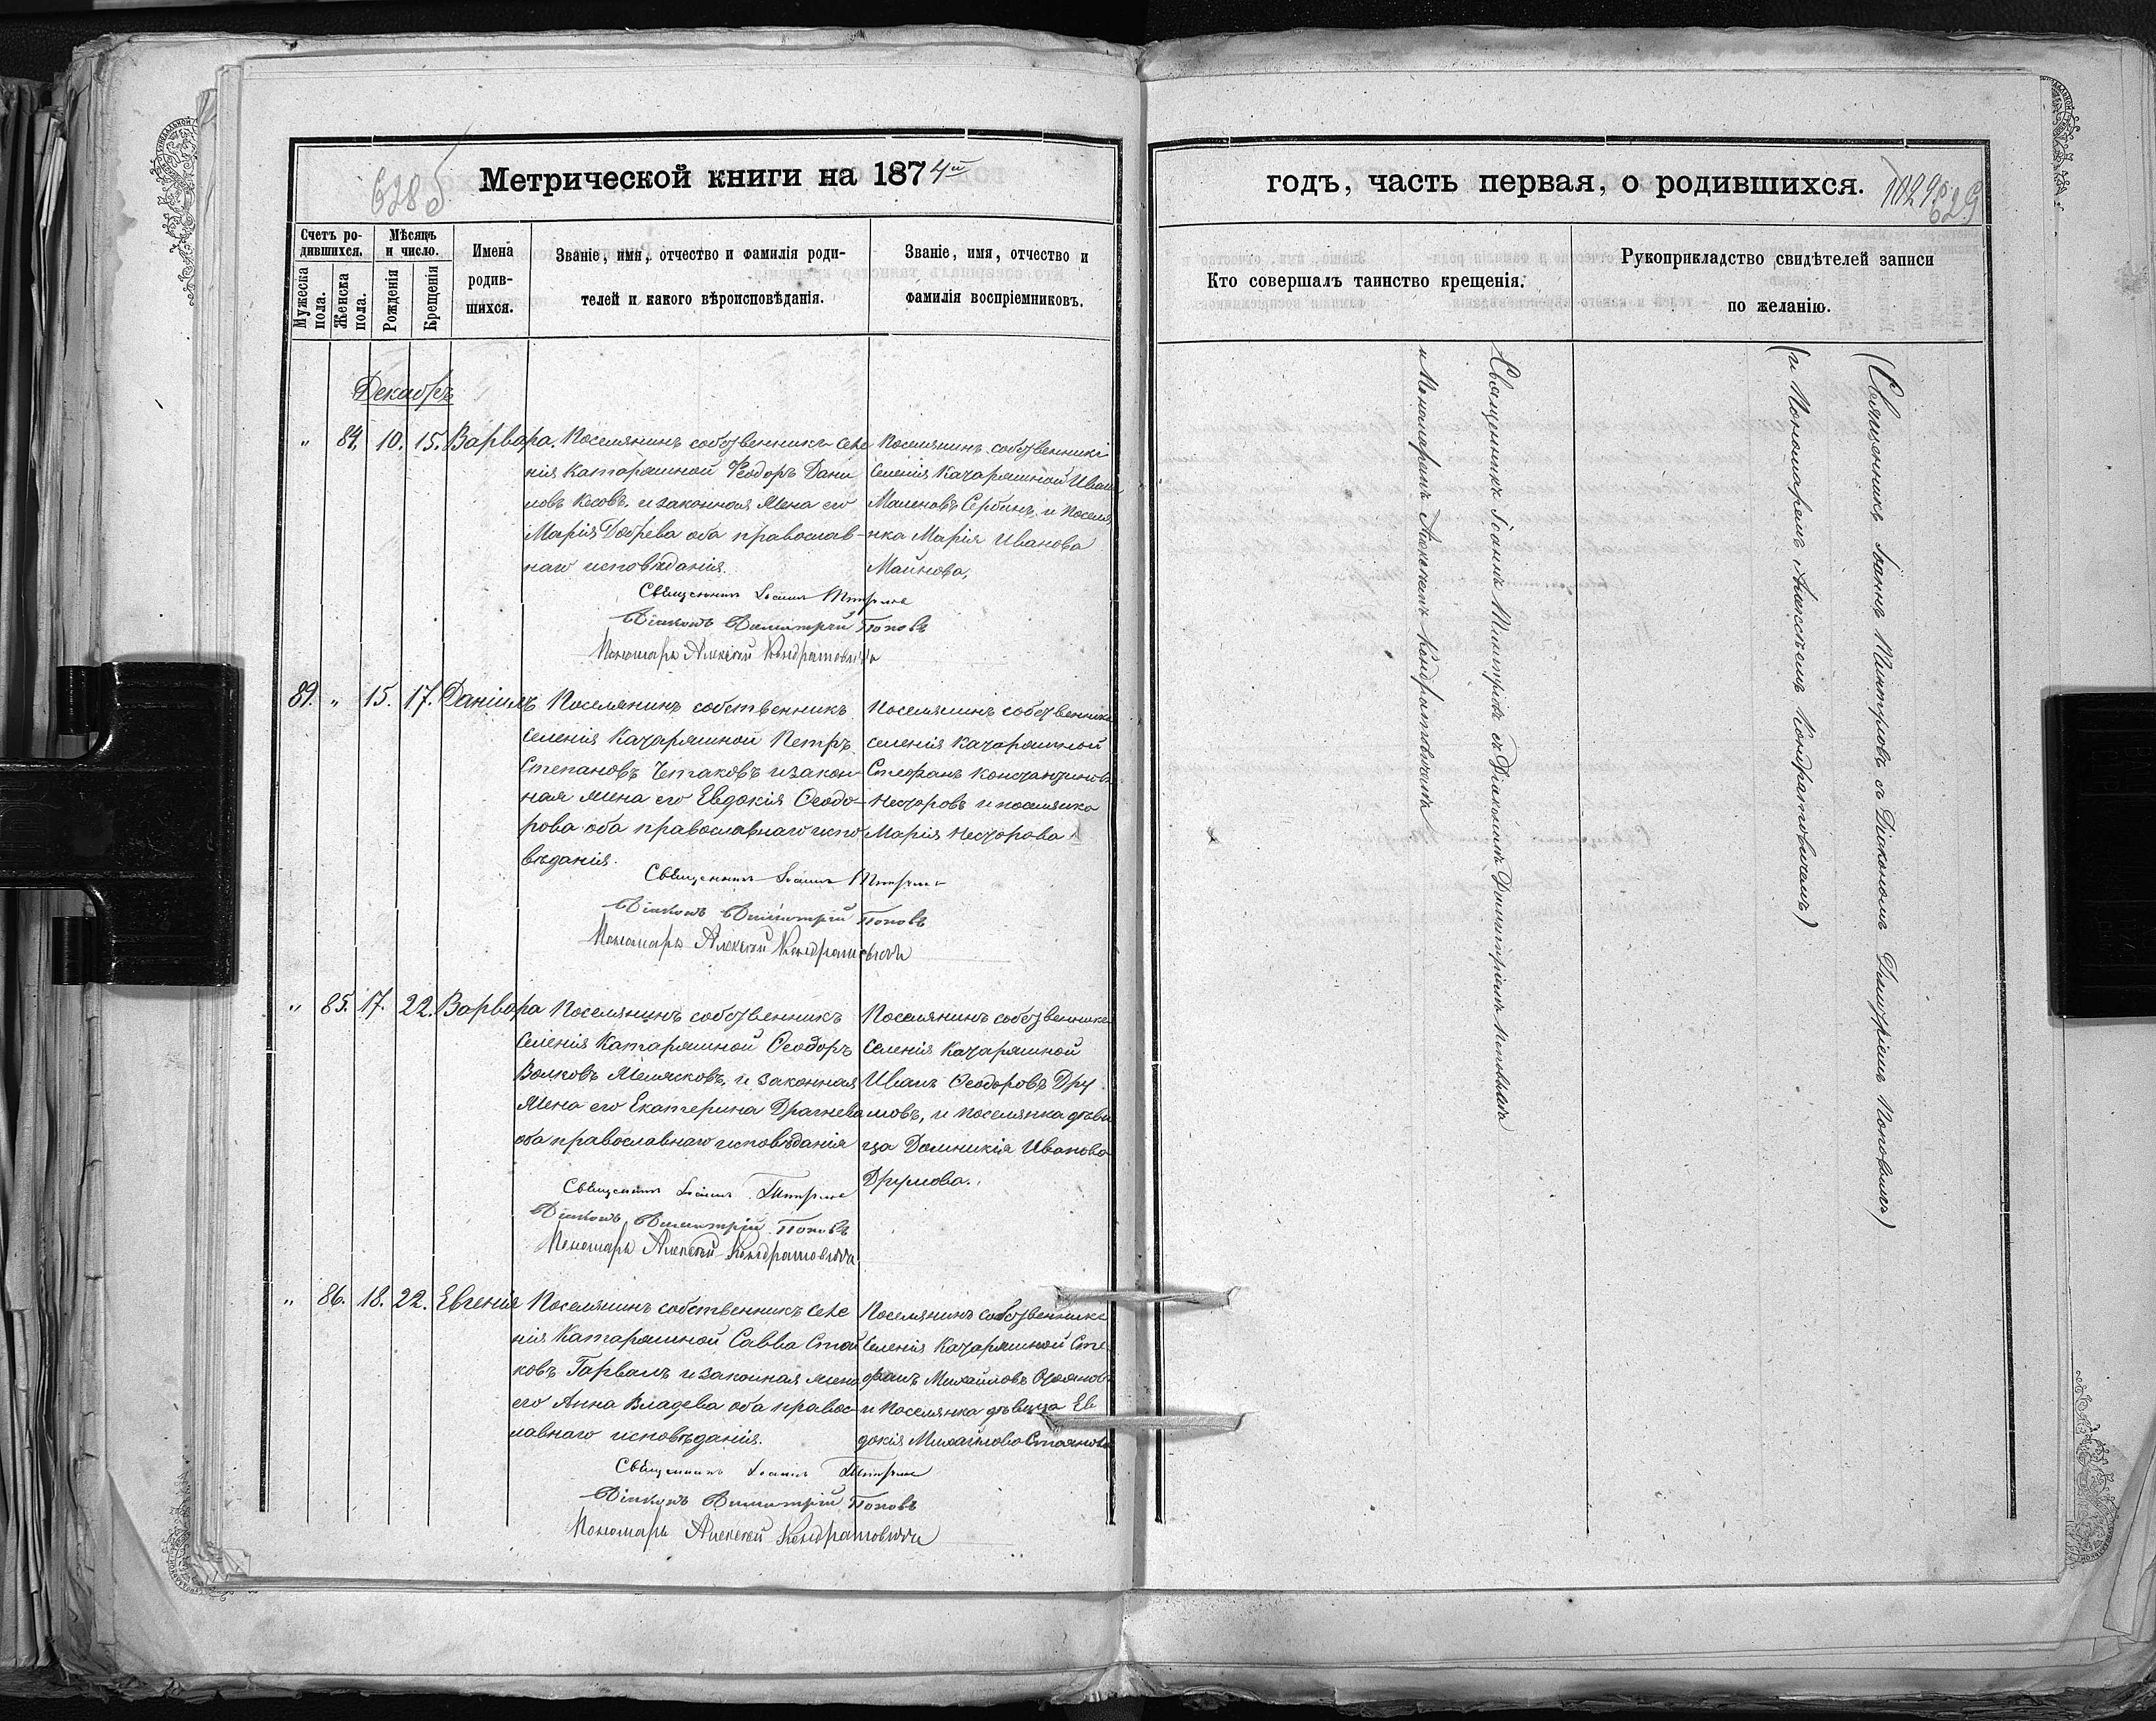 628 б
Метрической книги на 1874й
Счетъ ро-
дившихся.
Мужеска
пола.
Женска
пола.
Мѣсяцъ
и число.
Рожденія
Крещенія
Имена
родив-
шихся.
Званіе, имя, отчество и фамилія роди-
телей и какого вѣроисповѣданія.
Званіе, имя, отчество и
фамилія воспріемниковъ.
Декабрь
" 84. 10. 15. Варвара.
Поселянинъ собственникъ селе
нія Катаржиной Феодоръ Дани
ловъ Кесовъ, и законная жена его
Марія Добрева оба православ-
наго исповѣданія.
Поселянинъ собственникъ
селенія Катаржиной Иванъ
Сербинъ, и поселя
нка Марія Иванова
Священникъ Іоаннъ
Діаконъ Димитрій Поповъ
Пономарь Алексѣй Кондратовичъ
89. " 15. 17. Даніилъ
Поселянинъ собственникъ
селенія Катаржиной Петръ
Степановъ Четаковъ и закон-
ная жена его Евдокія Ѳеодо-
рова оба православнаго испо
вѣданія.
Поселянинъ собственникъ
селенія Катаржиной
Стефанъ Константиновъ
Несторовъ и поселянка
Марія Несторова
Священникъ Іоаннъ
Діаконъ Димитрій Поповъ
Пономарь Алексѣй Кондратовичъ
" 85. 17. 22. Варвара
Поселянинъ собственникъ
селенія Катаржиной Ѳеодоръ
Волковъ Желясковъ, и законная
жена его Екатерина Драгнева
оба православнаго исповѣданія
Поселянинъ собственникъ
селенія Катаржиной
Иванъ Ѳеодоровъ Дру
мовъ, и поселянка дѣви
ца Домникія Иванова
Друмова.
Священникъ Іоаннъ
Діаконъ Димитрій Поповъ
Пономарь Алексѣй Кондратовичъ
" 86. 18. 22. Евгенія
Поселянинъ собственникъ селе
нія Катаржиной Савва Стой
ковъ и законная жена
его Анна Владева оба правос-
лавнаго исповѣданія.
Поселянинъ собственникъ
селенія Катаржиной Сте
фанъ Михайловъ Стоянов
и поселянка дѣвица Ев
докія Михайлова Стоянова
Священникъ Іоаннъ
Діаконъ Димитрій Поповъ
Пономарь Алексѣй Кондратовичъ
годъ, часть первая, о родившихся.
1029
629
Кто совершалъ таинство крещенія.
Рукоприкладство свидѣтелей записи
по желанію.
Священникъ Іоаннъ съ Діакономъ Димитріемъ Поповымъ
и Пономаремъ Алексѣемъ Кондратовичемъ
(Священникъ Іоаннъ съ Діакономъ Димитріемъ Поповымъ)
(и Пономаремъ Алексѣемъ Кондратовичемъ)